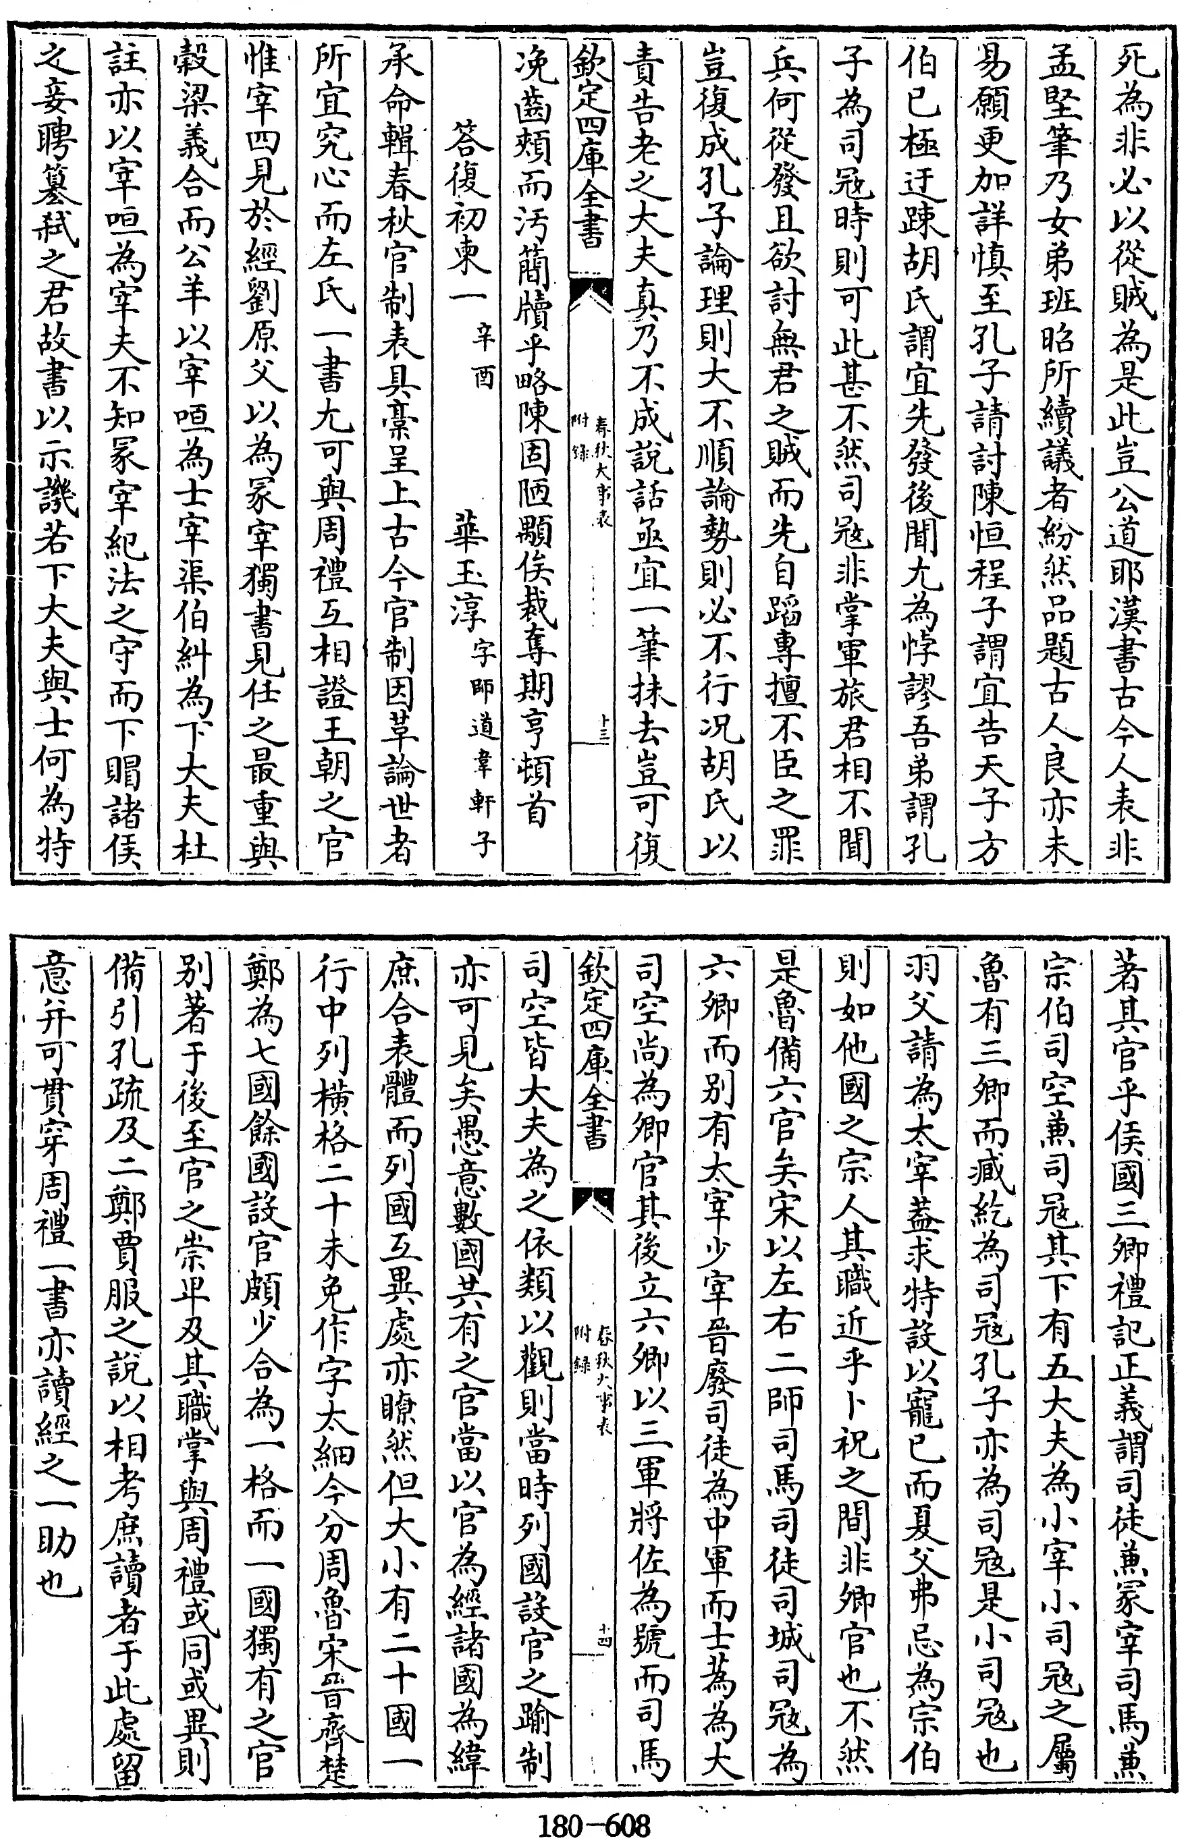 死為非必以從賊為是此豈公道耶漢書古今人表非
孟堅筆乃女弟班昭所續議者紛然品題古人良亦未
易願更加詳慎至孔子請討陳恒程子謂宜告天子方
伯已極迂踈胡氏謂宜先發後聞尤為悖謬吾弟謂孔
子為司冦時則可此甚不然司冦非掌軍旅君相不聞
兵何從發且欲討無君之賊而先自蹈專擅不臣之罪
豈復成孔子論理則大不順論勢則必不行况胡氏以
責告老之大夫真乃不成說話亟宜一筆抹去豈可復
欽定四庫全書
春秋大事表
附錄
十三
浼齒頰而汚簡牘乎略陳固陋顒俟裁奪期亨頓首
答復初柬一 辛酉 華玉淳 字師道韋軒子
承命輯春秋官制表具稾呈上古今官制因革論世者
所宜究心而左氏一書尤可與周禮互相證王朝之官
惟宰四見於經劉原父以為冢宰獨書見任之最重與
穀梁義合而公羊以宰咺為士宰渠伯糾為下大夫杜
註亦以宰咺為宰夫不知冢宰紀法之守而下賵諸侯
之妾聘簒弒之君故書以示譏若下大夫與士何為特
著其官乎侯國三卿禮記正義謂司徒兼冢宰司馬兼
宗伯司空兼司冦其下有五大夫為小宰小司冦之屬
魯有三卿而臧紇為司冦孔子亦為司冦是小司冦也
羽父請為太宰葢求特設以寵已而夏父弗忌為宗伯
則如他國之宗人其職近乎卜祝之間非卿官也不然
是魯備六官矣宋以左右二師司馬司徒司城司冦為
六卿而别有太宰少宰晉廢司徒為中軍而士蒍為大
司空尚為卿官其後立六卿以三軍將佐為號而司馬
欽定四庫全書
春秋大事表
附錄
十四
司空皆大夫為之依類以觀則當時列國設官之踰制
亦可見矣愚意數國共有之官當以官為經諸國為緯
庶合表體而列國互異處亦瞭然但大小有二十國一
行中列橫格二十未免作字太細今分周魯宋晉齊楚
鄭為七國餘國設官頗少合為一格而一國獨有之官
别著于後至官之崇卑及其職掌與周禮或同或異則
備引孔疏及二鄭賈服之說以相考庶讀者于此處留
意并可貫穿周禮一書亦讀經之一助也
180-608